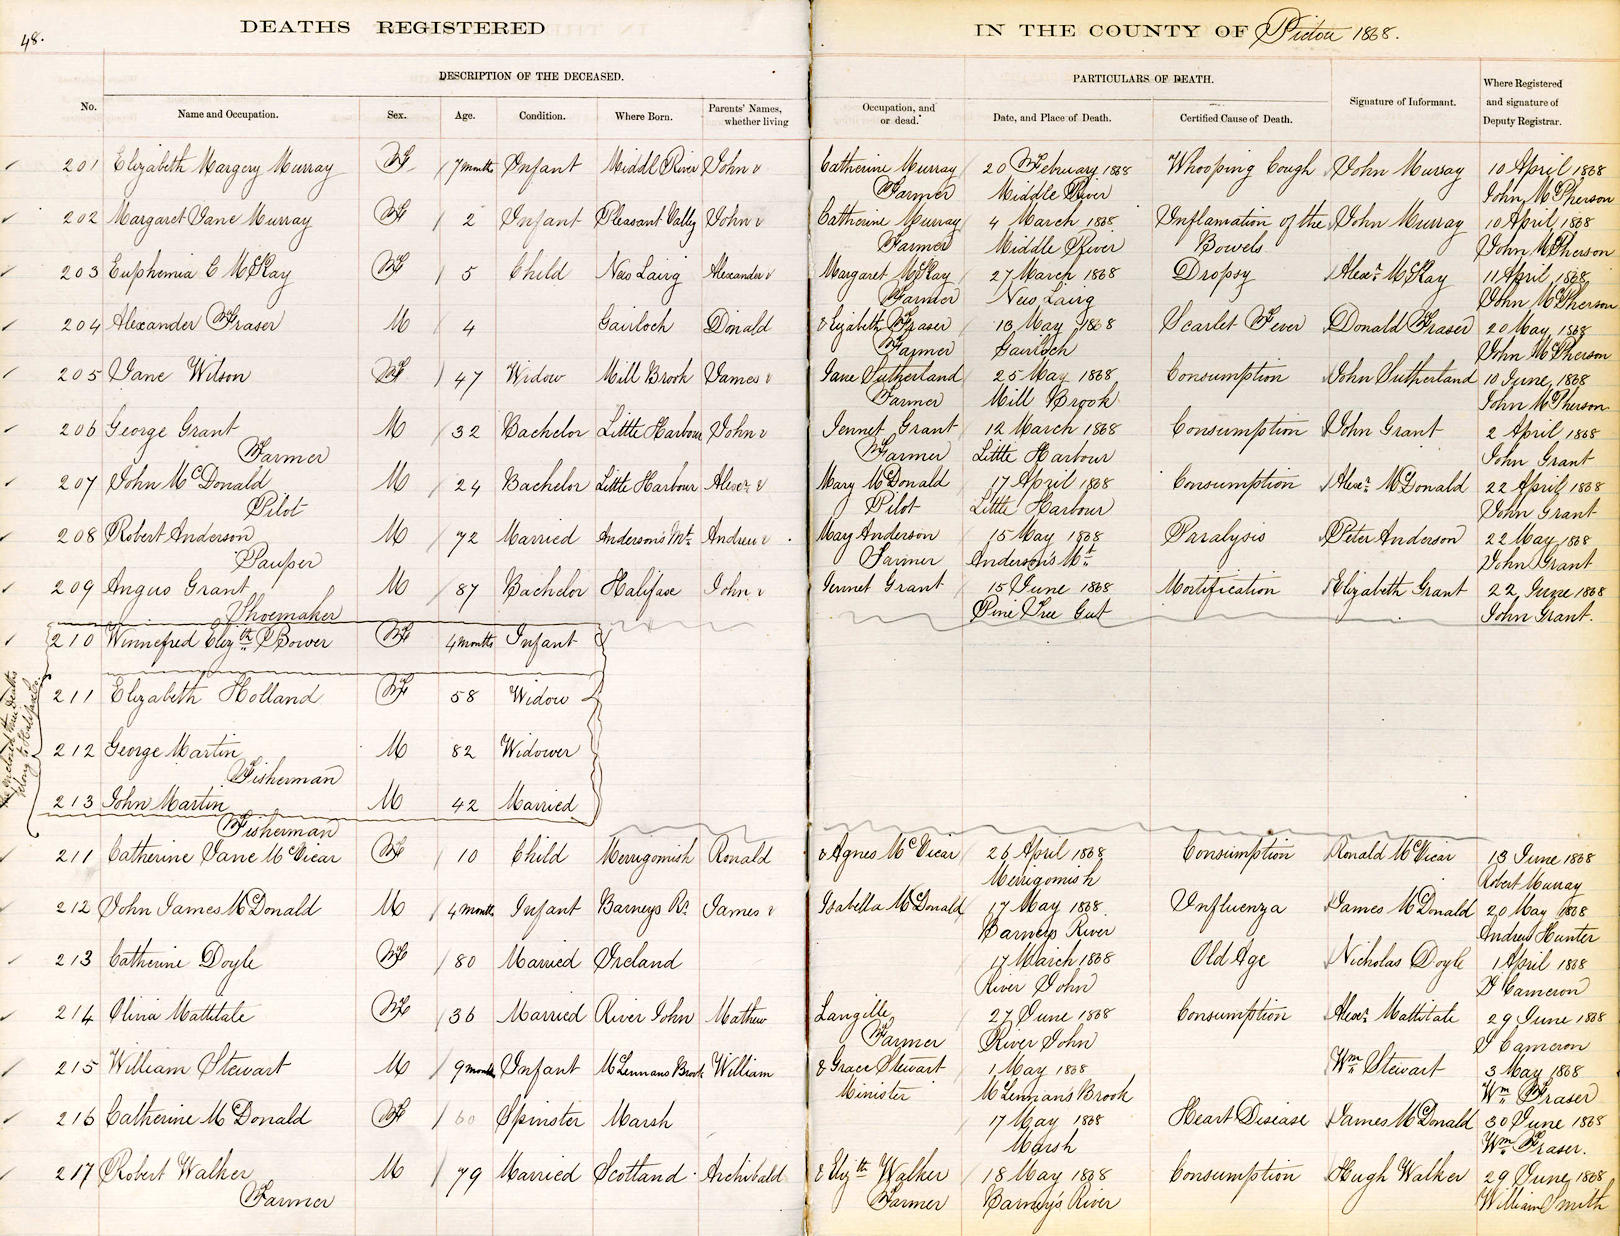 48.
DEATHS REGISTERED IN THE COUNTY OF Pictou 1868.
DESCRIPTION OF THE DECEASED. PARTICULARS OF DEATH.
No. Name and Occupation. Sex. Age. Condition. Where Born. Parents' Names, whether living Occupation, and or dead. Date, and Place of Death. Certified Cause of Death. Signature of Informant. Where Registered and signature of Deputy Registrar.
201 Elizabeth Margery Murray F 7 months Infant Middl River John & Catherine Murray 20 February 1868 Whooping Cough John Murray 10 April 1868
Farmer Middle River John McPherson
202 Margaret Jane Murray F 2 Infant Pleasant Vally John & Catherine Murray 4 March 1868 Inflamation of the John Murray 10 April 1868
Farmer Middle River Bowels John McPherson
203 Euphemia C McKay F 5 Child New Lairg Alexander & Margaret McKay 27 March 1868 Dropsy Alexr McKay 11 April 1868
Farmer New Lairg John McPherson
204 Alexander Fraser M 4 Gairloch Donald & Elizabeth Fraser 13 May 1868 Scarlet Fever Donald Fraser 20 May 1868
Farmer Gairloch John McPherson
205 Jane Wilson F 47 Widow Mill Brook James & Jane Sutherland 25 May 1868 Consumption John Sutherland 10 June 1868
Farmer Mill Brook John McPherson
206 George Grant M 32 Bachelor Little Harbour John & Jennet Grant 12 March 1868 Consumption John Grant 2 April 1868
Farmer Farmer Little Harbour John Grant
207 John McDonald M 24 Bachelor Little Harbour Alexr & Mary McDonald 17 April 1868 Consumption Alexr McDonald 22 April 1868
Pilot Pilot Little Harbour John Grant
208 Robert Anderson M 72 Married Anderson's Mt. Andrew & Mary Anderson 15 May 1868 Paralysis Peter Anderson 22 May 1868
Pauper Farmer Anderson's Mt John Grant
209 Angus Grant M 87 Bachelor Halifax John & Jennet Grant 15 June 1868 Mortification Elizabeth Grant 22 June 1868
Shoemaker Pine Tree Gut John Grant.
210 Winnefred Elizth Bower F 4 months Infant
211 Elizabeth Holland F 58 Widow
212 George Martin M 82 Widower
Fisherman
213 John Martin M 42 Married
Fisherman
211 Catherine Jane McVicar F 10 Child Merrigomish Ronald & Agnes McVicar 26 April 1868 Consumption Ronald McVicar 13 June 1868
Merrigomish Robert Murray
212 John James McDonald M 4 months Infant Barneys Rr. James & Isabella McDonald 17 May 1868 Influenza James McDonald 20 May 1868
Barneys River Andrew Hunter
213 Catherine Doyle F 80 Married Ireland 17 March 1868 Old Age Nicholas Doyle 1 April 1868
River John D Cameron
214 Olivia Mattitale F 36 Married River John Mathew Langille 27 June 1868 Consumption Alexr Mattitale 29 June 1868
Farmer River John D Cameron
215 William Stewart M 9 months Infant McLennans Brook William & Grace Stewart 1 May 1868 Wm Stewart 3 May 1868
Minister McLennan's Brook Wm Fraser
216 Catherine McDonald F 60 Spinster Marsh 17 May 1868 Heart Disease James McDonald 30 June 1868
Marsh Wm Fraser.
217 Robert Walker M 79 Married Scotland Archibald & Elizth Walker 18 May 1868 Consumption Hugh Walker 29 June 1868
Farmer Farmer Barney's River William Smith